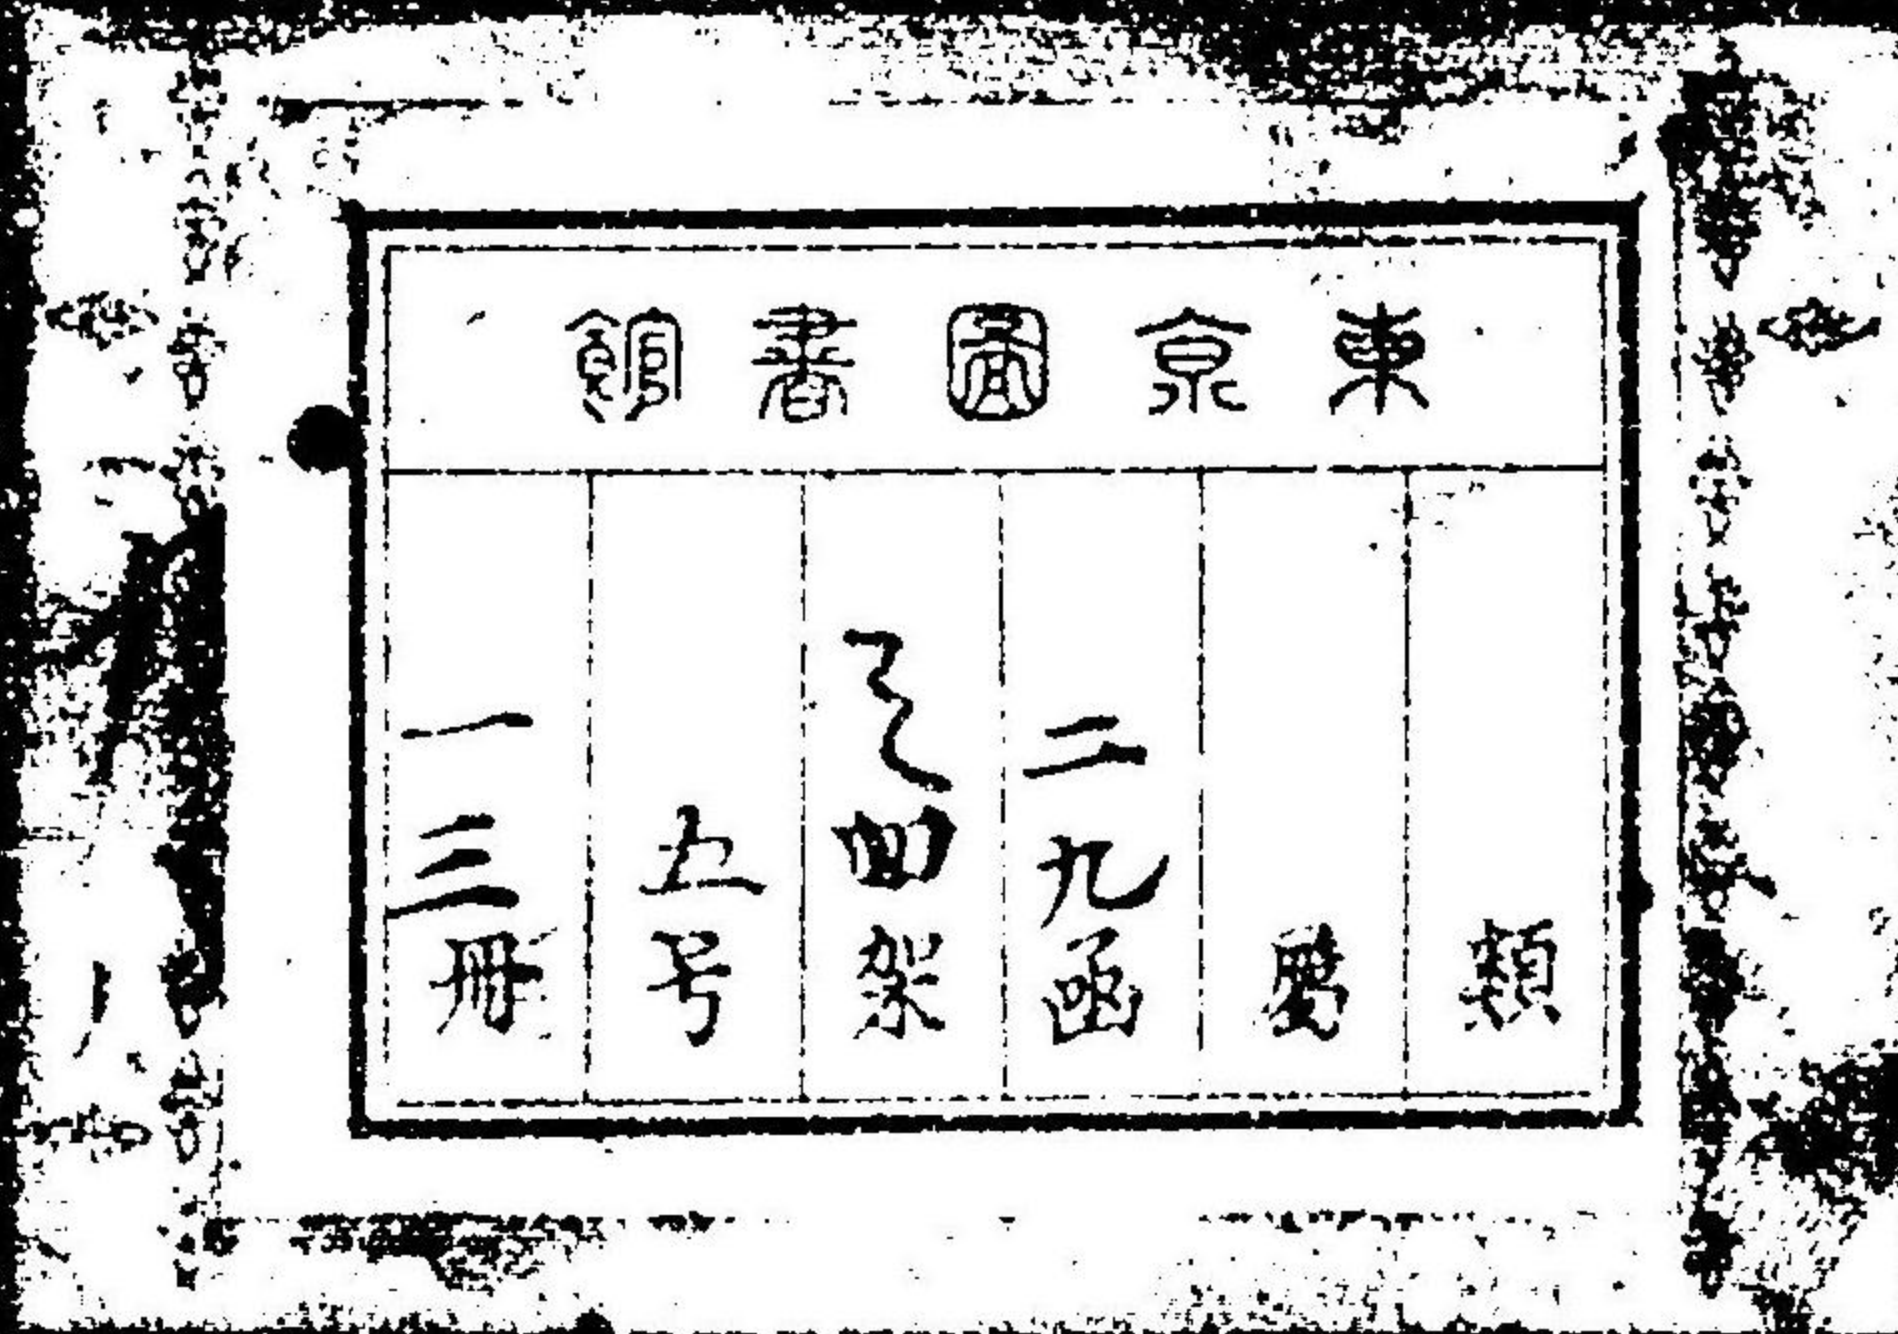 東京圖書館
類
屬
二九函
四架
五号
一三冊